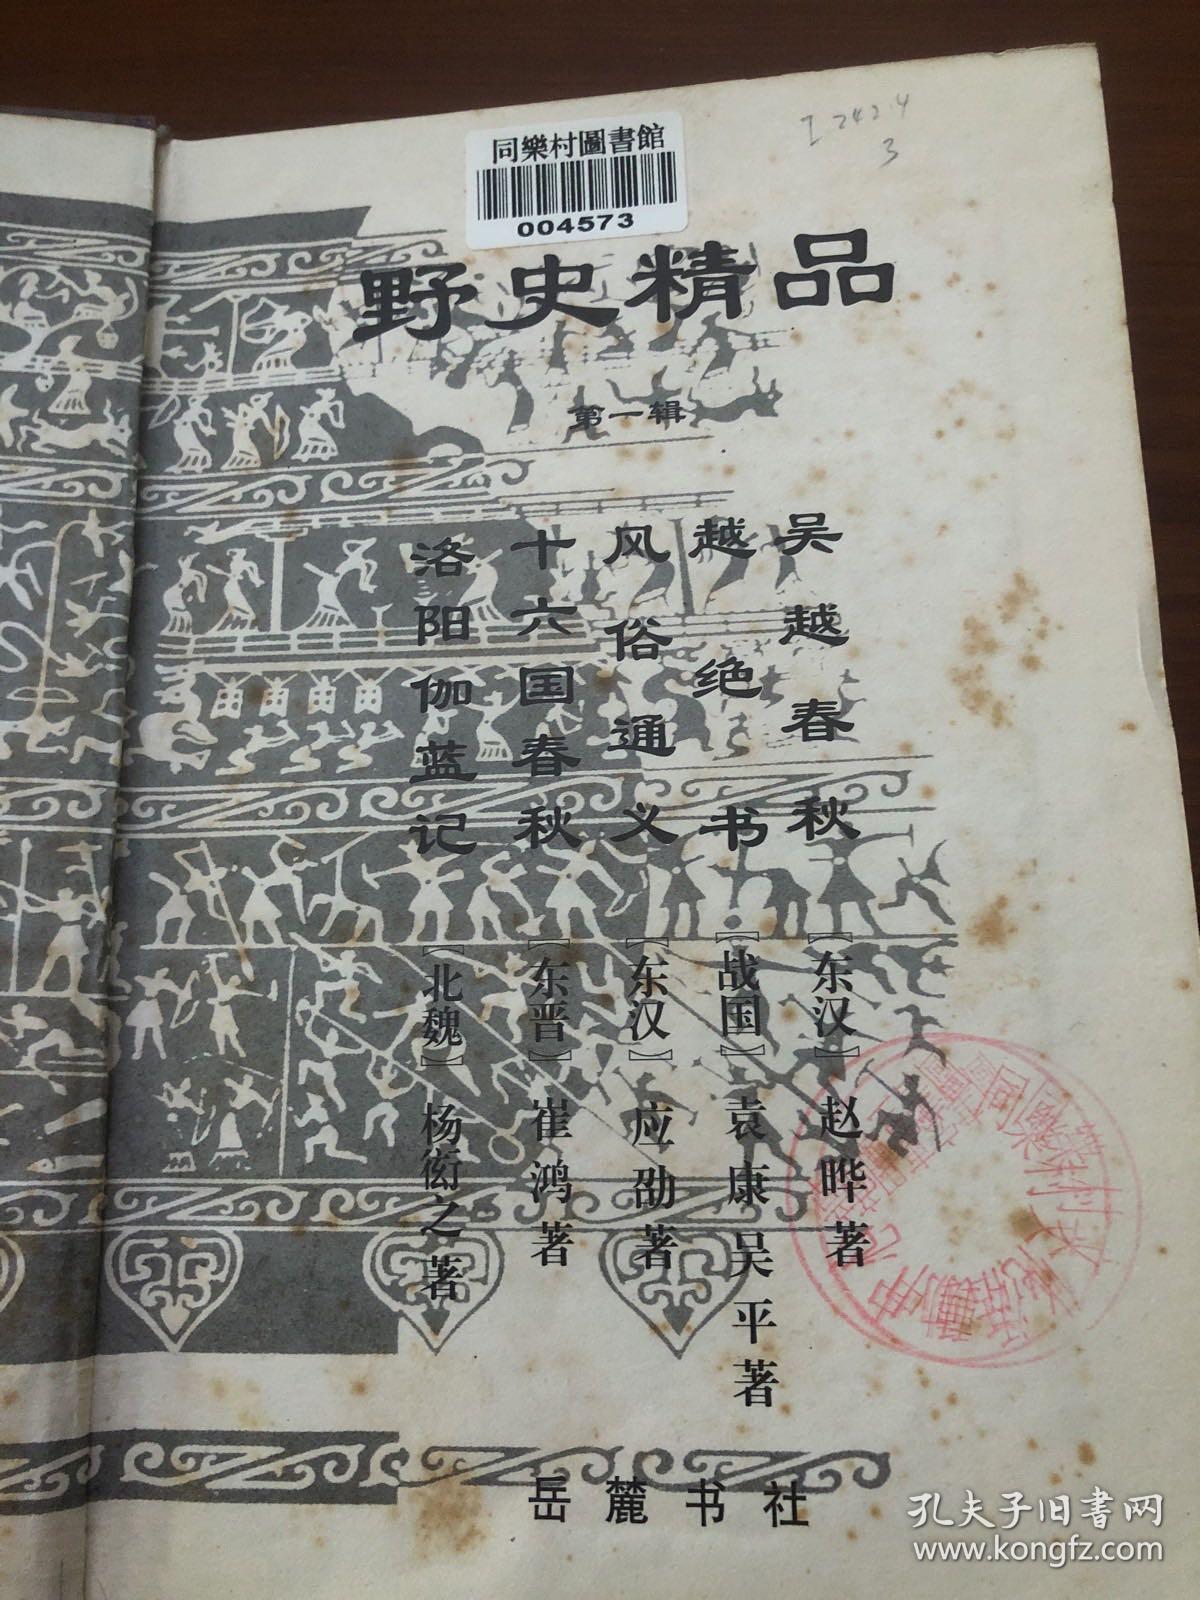 同樂村圖書館
004573
I 242.4
3
野史精品
第一辑
吴越春秋 【东汉】赵晔著
越绝书 【战国】袁康 吴平著
风俗通义 【东汉】应劭著
十六国春秋 【东晋】崔鸿著
洛阳伽蓝记 【北魏】杨衒之著
岳麓书社
孔夫子旧书网
www.kongfz.com